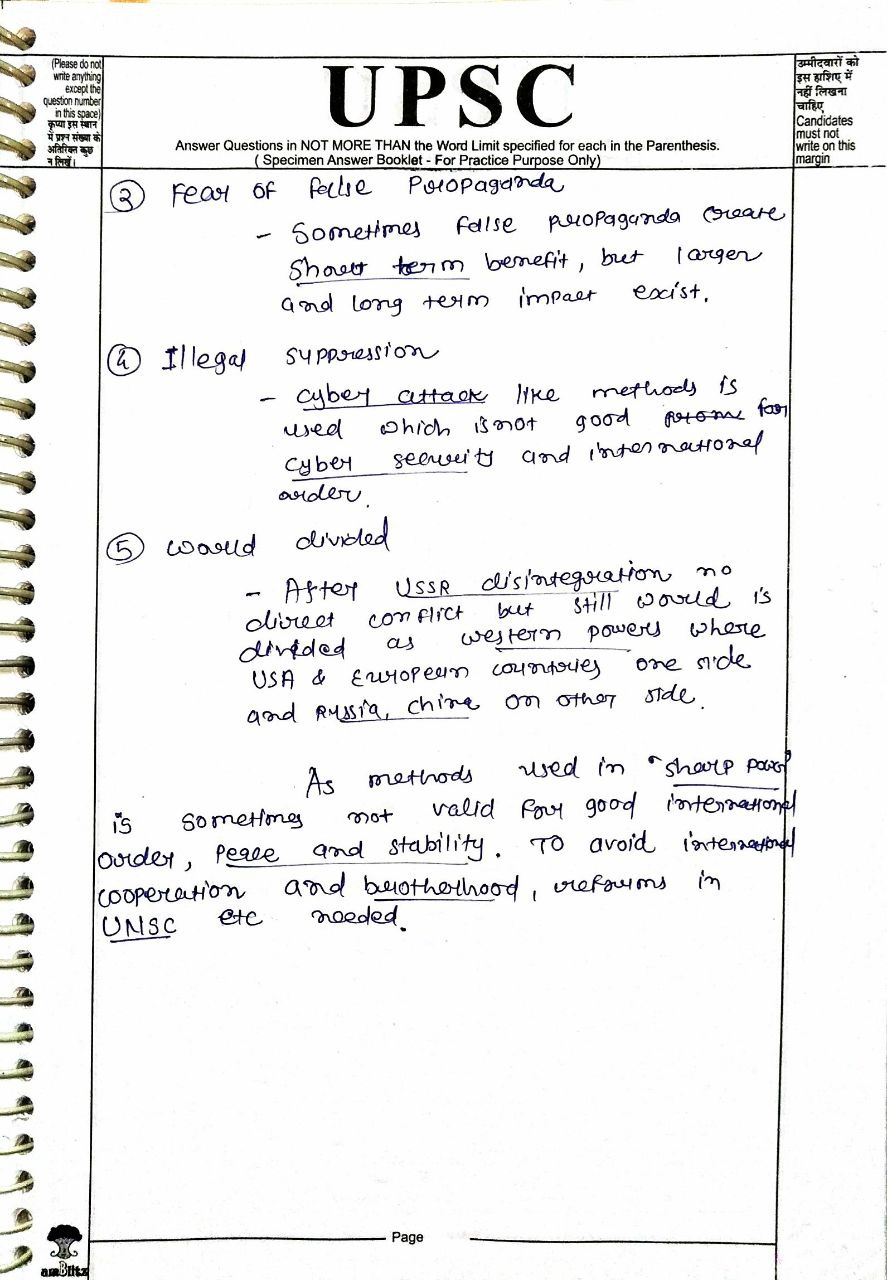 (Please do not
write anything
except the
question number
in this space)
कृपया इस स्थान
में प्रश्न संख्या के
अतिरिक्त कुछ
न लिखें।
UPSC
Answer Questions in NOT MORE THAN the Word Limit specified for each in the Parenthesis.
( Specimen Answer Booklet - For Practice Purpose Only)
उम्मीदवारों को
इस हाशिए में
नहीं लिखना
चाहिए
Candidates
must not
write on this
margin
③ Fear of false Propaganda
- Sometimes false propaganda create
short term benefit, but larger
and long term impact exist.
④ Illegal suppression
- cyber attack like methods is
used which is not good for
cyber security and international
order.
⑤ World divided
- After USSR disintegration no
direct conflict but still world is
divided as western powers where
USA & European countries one side
and Russia, China on other side.
As methods used in "sharp power
is sometimes not valid for good international
order, peace and stability. To avoid international
cooperation and brotherhood, reforms in
UNSC etc needed.
Page
amBitz